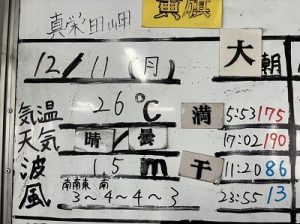 真栄田岬 黄旗
12/11(月) 大 朝
気温 26℃ 満 5:53 175
天気 晴/曇 17:02 190
波 1.5m 干 11:20 86
風 南南東 南 3~4~4~3 23:55 13